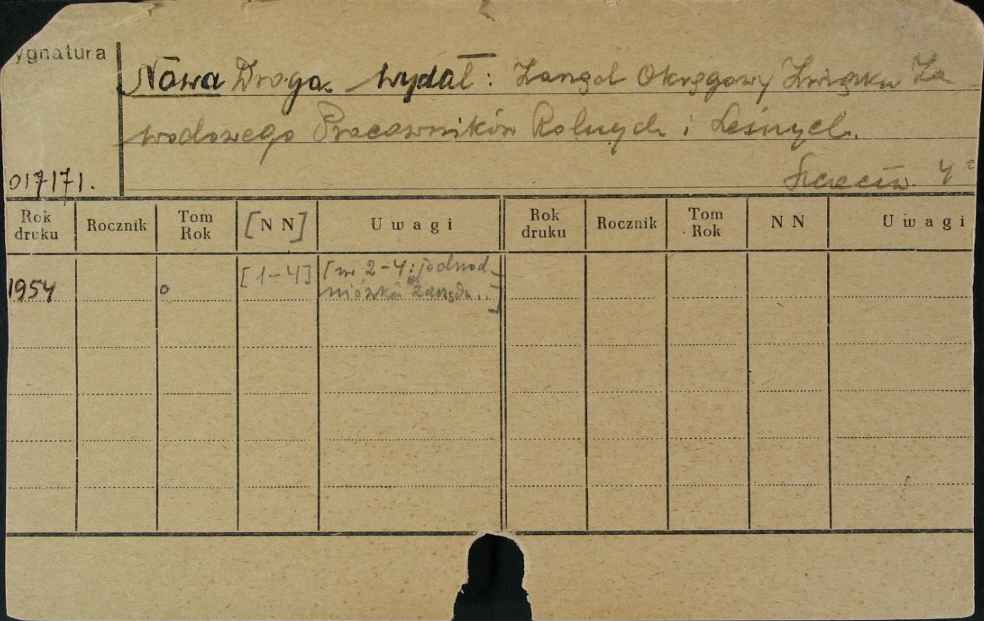 ygnatura
Nowa Droga. Wydał: Zarząd Okręgowy Związku Za
wodowego Pracowników Rolnych i Leśnych.
Szczecin. 4°
017171.
Rok druku Rocznik Tom Rok [NN] Uwagi Rok druku Rocznik Tom Rok NN Uwagi
1954 o [1-4] [nr 2-4: jednod
niówka zarządu..]